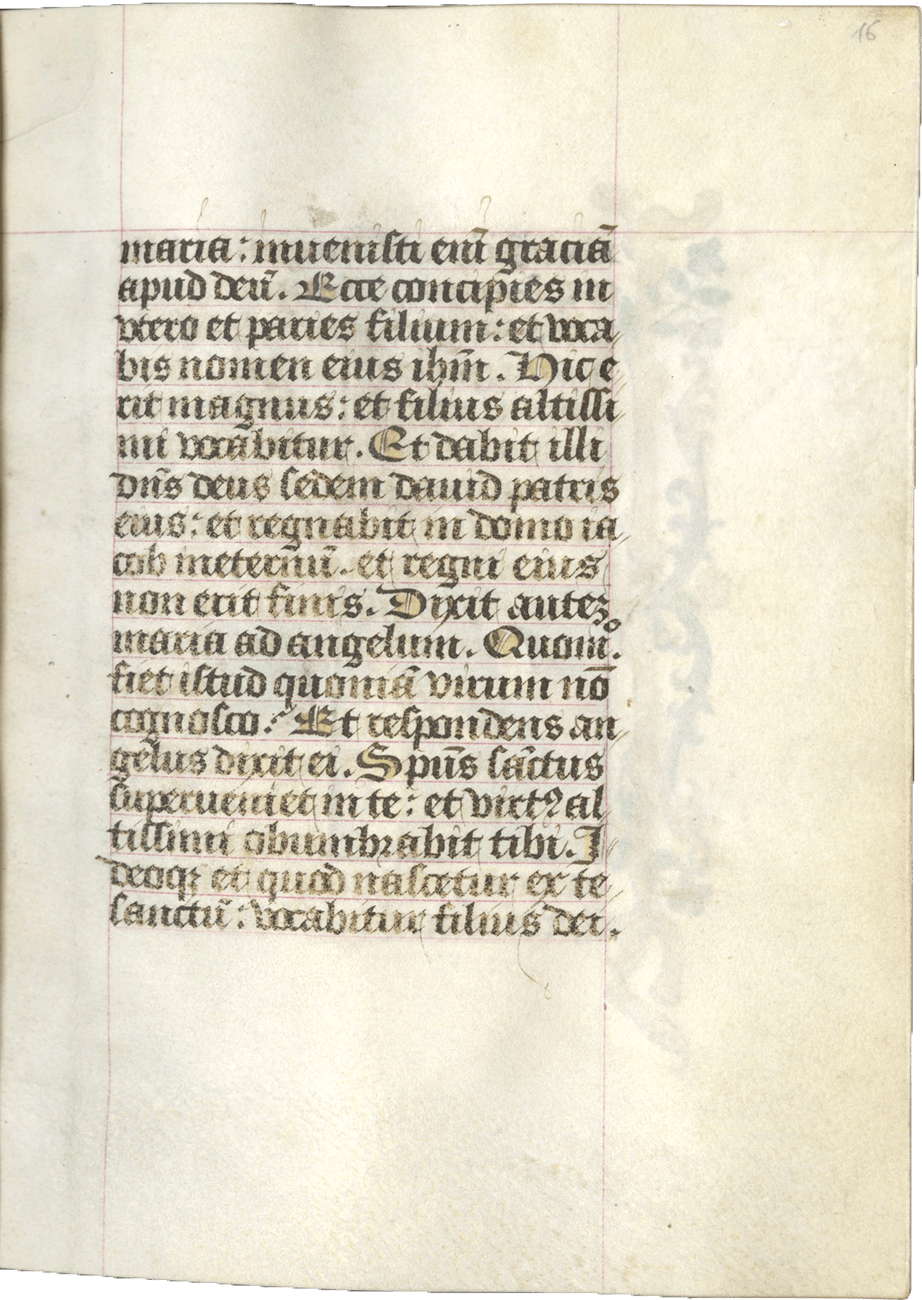 16
maria: inuenisti eni᷃ graciā
apud deū. Ecce concipies in
vtero et paries filium: et voca
bis nomen eius ihm̄. Hic e
rit magnus: et filius altissi
mi vocabitur. Et dabit illi
dn̄s deus sedem dauid patris
eius: et regnabit in domo ia
cob in eternū. et regni eius
non erit finis. Dixit autez
maria ad angelum. Quom̄o.
fiet istud quoniā virum nō
cognosco? Et respondens an
gelus dixit ei. Spūs sāctus
superueniet in te: et virtꝰ al
tissimi obumbrabit tibi. I
deoqꝫ et quod nascetur ex te
sanctū: vocabitur filius dei.